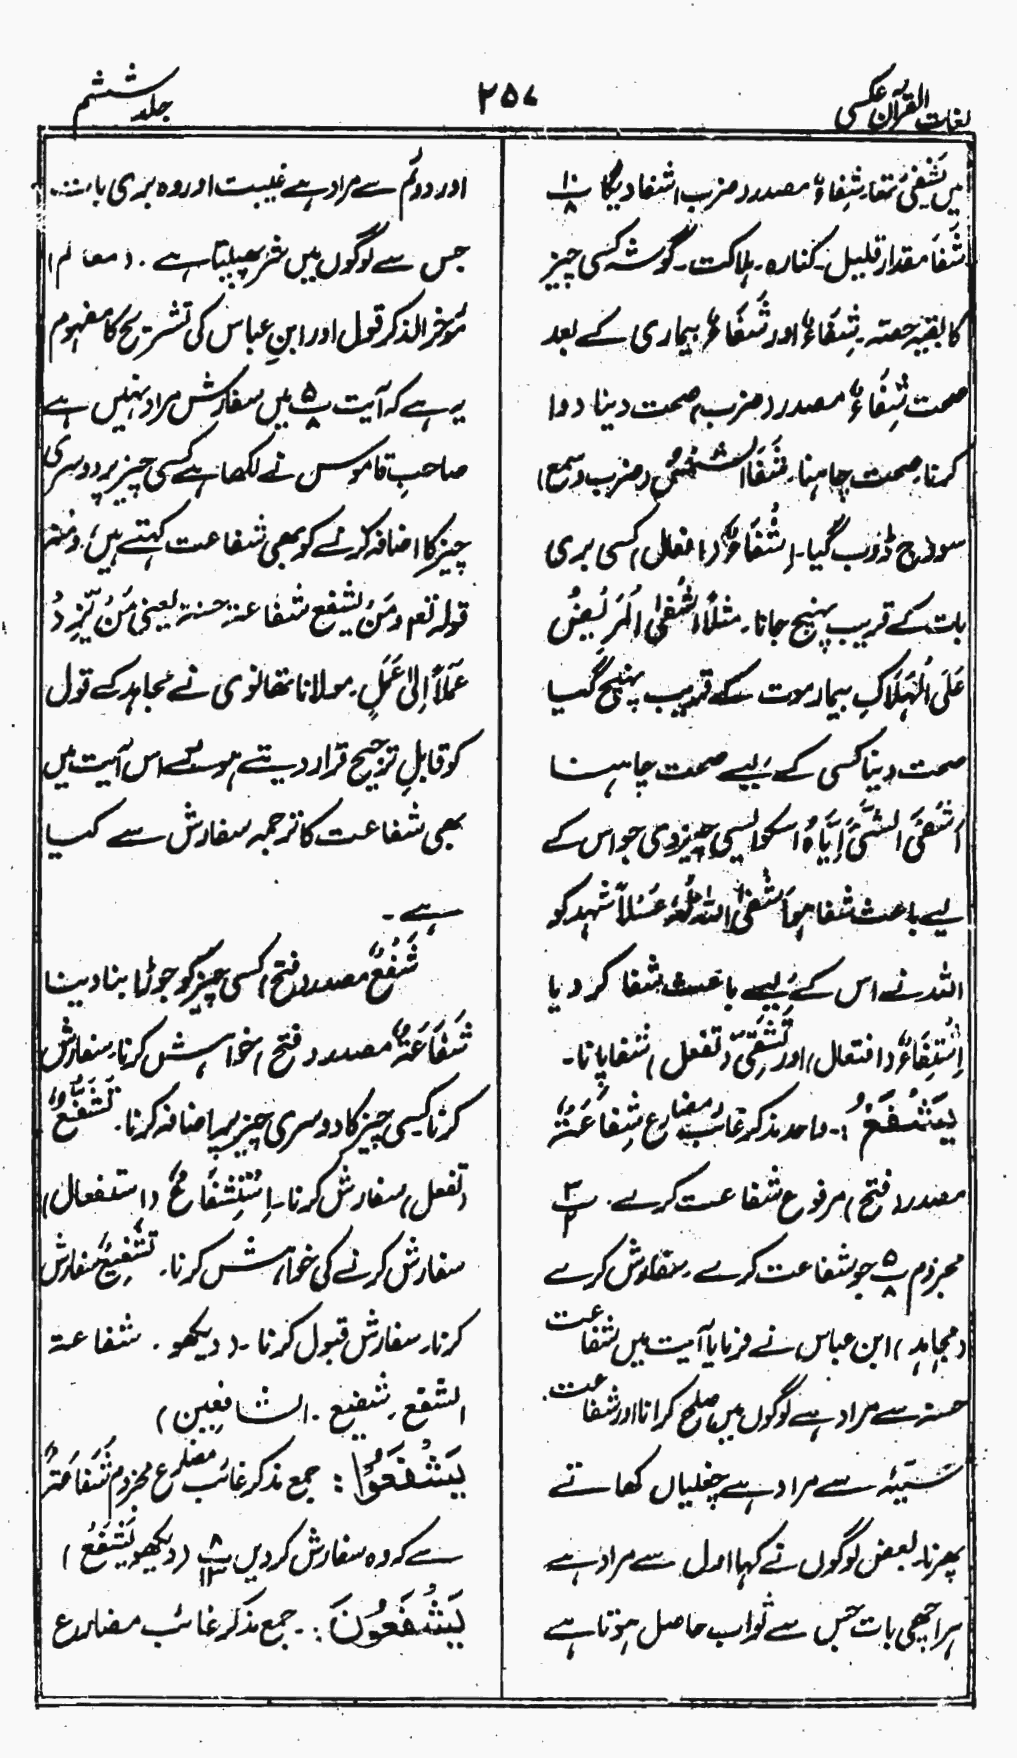 لغات القرآن عکسی
۲۵۷
جلد ششم
میں یَشْفِیْ تھا، شِفَاءٌ مصدر (ضرب) شفا دیگا پ ۱۰/۸
شَفَا مقدار قلیل۔ کنارہ۔ ہلاکت۔ گوشہ کسی چیز
کا بقیہ حصہ۔ شِفَاءٌ اور شَفَاءٌ بیماری کے بعد
صحت شِفَاءٌ مصدر (ضرب) صحت دینا دوا
کرنا۔ صحت چاہنا۔ شَفَا الشَّمْسُ (ضرب و سمع)
سورج ڈوب گیا۔ اِشْفَاءٌ (افعال) کسی بری
بات کے قریب پہنچ جانا۔ مثلاً اَشْفَی الْمَرِیْضُ
عَلَی الْہَلَاکِ بیمار موت کے قریب پہنچ گیا
صحت دینا کسی کے لیے صحت چاہنا
اَشْفَی الشَّیْءَ اِیَّاہُ اسکو ایسی چیز دی جو اس کے
لیے باعث شفا ہو اَشْفَی اللّٰہُ عَسَلاً شہد کو
اللہ نے اس کے لیے باعث شفا کر دیا
اِشْتِفَاءٌ (افتعال) اور تَشَفِّیْ (تفعل) شفا پانا۔
یَشْفَعْ :۔ واحد مذکر غائب مضارع شَفَاعَۃٌ
مصدر (فتح) مرفوع شفاعت کرے۔ پ ۳/۲
مجزوم پ ۵/۸ جو شفاعت کرے۔ سفارش کرے
(مجاہد) ابن عباس نے فرمایا آیت میں شفاعت
حسنہ سے مراد ہے لوگوں میں صلح کرانا اور شفاعت
سَیِّئہ سے مراد ہے چغلیاں کھاتے
پھرنا۔ بعض لوگوں نے کہا اول سے مراد ہے
ہر اچھی بات جس سے ثواب حاصل ہوتا ہے
اور دوئم سے مراد ہے غیبت اور وہ بری بات
جس سے لوگوں میں شر پھیلتا ہے۔ (معالم)
مؤخر الذکر قول اور ابن عباس کی تشریح کا مفہوم
یہ ہے کہ آیت پ ۵/۸ میں سفارش مراد نہیں ہے
صاحبِ قاموس نے لکھا ہے کسی چیز پر دوسری
چیز کا اضافہ کرنے کو بھی شفاعت کہتے ہیں، ومنہ
قولہ تعم وَمَنْ یشفع شفاعۃ حسنۃ یعنی مَنْ یَّزِدْ
عَمَلاً اِلٰی عَمَلٍ۔ مولانا تھانوی نے مجاہد کے قول
کو قابلِ ترجیح قرار دیتے ہوئے اس آیت میں
بھی شفاعت کا ترجمہ سفارش سے کیا
ہے۔
شَفْعٌ مصدر (فتح) کسی چیز کو جوڑا بنا دینا
شَفَاعَۃٌ مصدر (فتح) خواہش کرنا۔ سفارش
کرنا کسی چیز کا دوسری چیز پر اضافہ کرنا۔ تَشَفُّعٌ
(تفعل) سفارش کرنا۔ اِسْتِشْفَاعٌ (استفعال)
سفارش کرنے کی خواہش کرنا۔ تَشْفِیْعٌ سفارش
کرنا۔ سفارش قبول کرنا۔ (دیکھو۔ شفاعۃ
الشفع۔ شفیع۔ الشافعین)
یَشْفَعُوْا : جمع مذکر غائب مضارع مجزوم شَفَاعَۃٌ
ہے کہ وہ سفارش کر دیں پ ۸/۱۳ (دیکھو یَشْفَعْ)
یَشْفَعُوْنَ :۔ جمع مذکر غائب مضارع